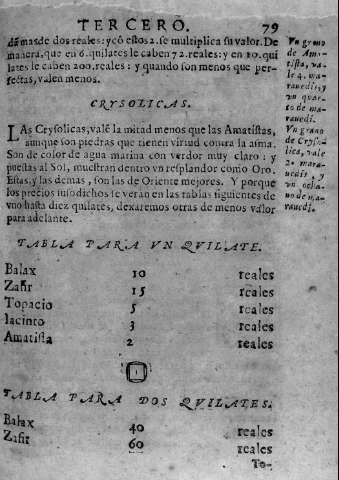 TERCERO. 79
dã mas de dos reales: y cõ estos 2. se multiplica su valor. De
manera, que en 6. quilates le caben 72. reales: y en 10. qui
lates le caben 200. reales: y quando son menos que per-
fectas, valen menos.
CRYSOLICAS.
LAs Crysolicas, valẽ la mitad menos que las Amatistas,
aunque son piedras que tienen virtud contra la asma.
Son de color de agua marina con verdor muy claro: y
puestas al Sol, muestran dentro vn resplandor como Oro.
Estas, y las demas, son las de Oriente mejores. Y porque
los precios susodichos se verán en las tablas siguientes de
vno hasta diez quilates, dexaremos otras de menos valor
para adelante.
Vn grano
de Ama-
tista, va-
le 4. ma-
rauedis, y
vn quar-
to de ma-
rauedi.
Vn grano
de Crysol
lica, vale
2. mara-
uedis, y
vn octa-
uo de ma-
rauedi.
TABLA PARA VN QVILATE.
Balax 10 reales
Zafir 15 reales
Topacio 5 reales
Iacinto 3 reales
Amatista 2 reales
TABLA PARA DOS QVILATES.
Balax 40 reales
Zafir 60 reales
To-